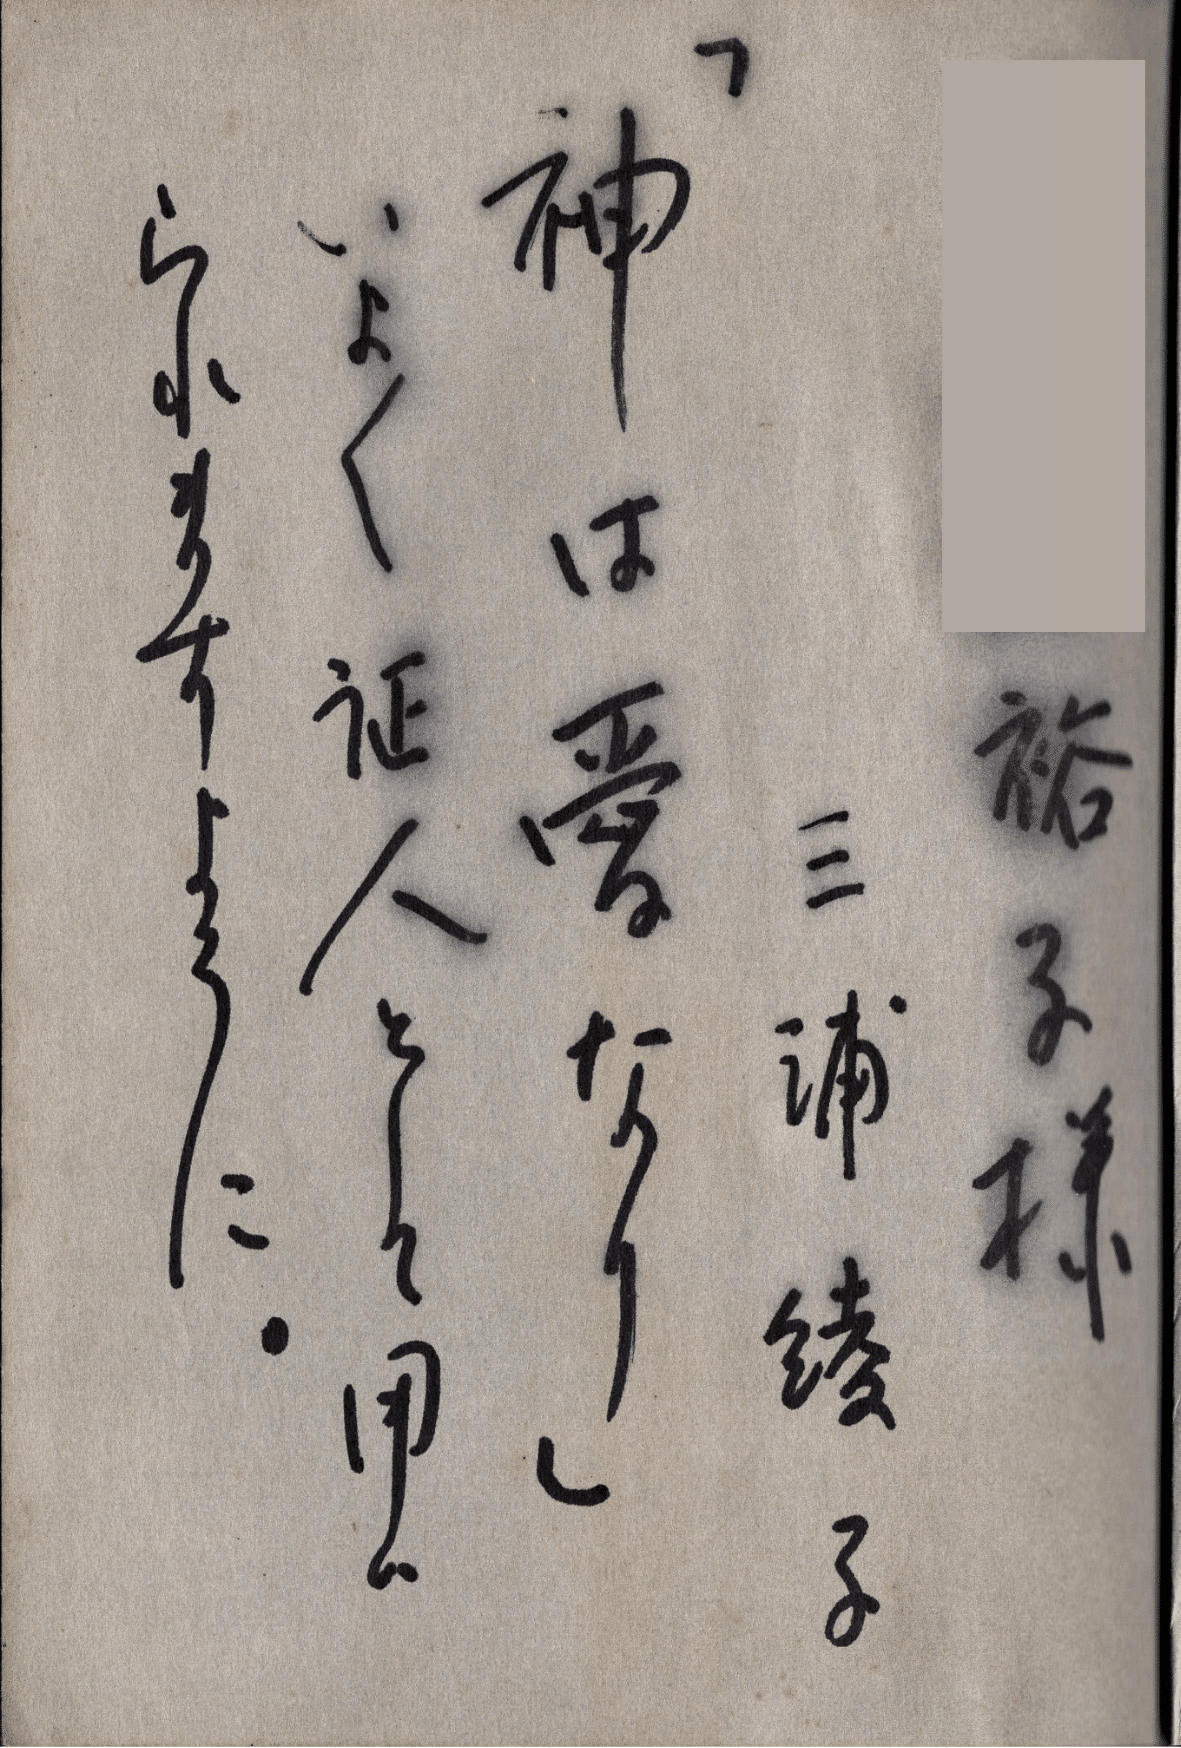 裕子様
三浦綾子
「神は愛なり」
いよ〱証人として用い
られますように。